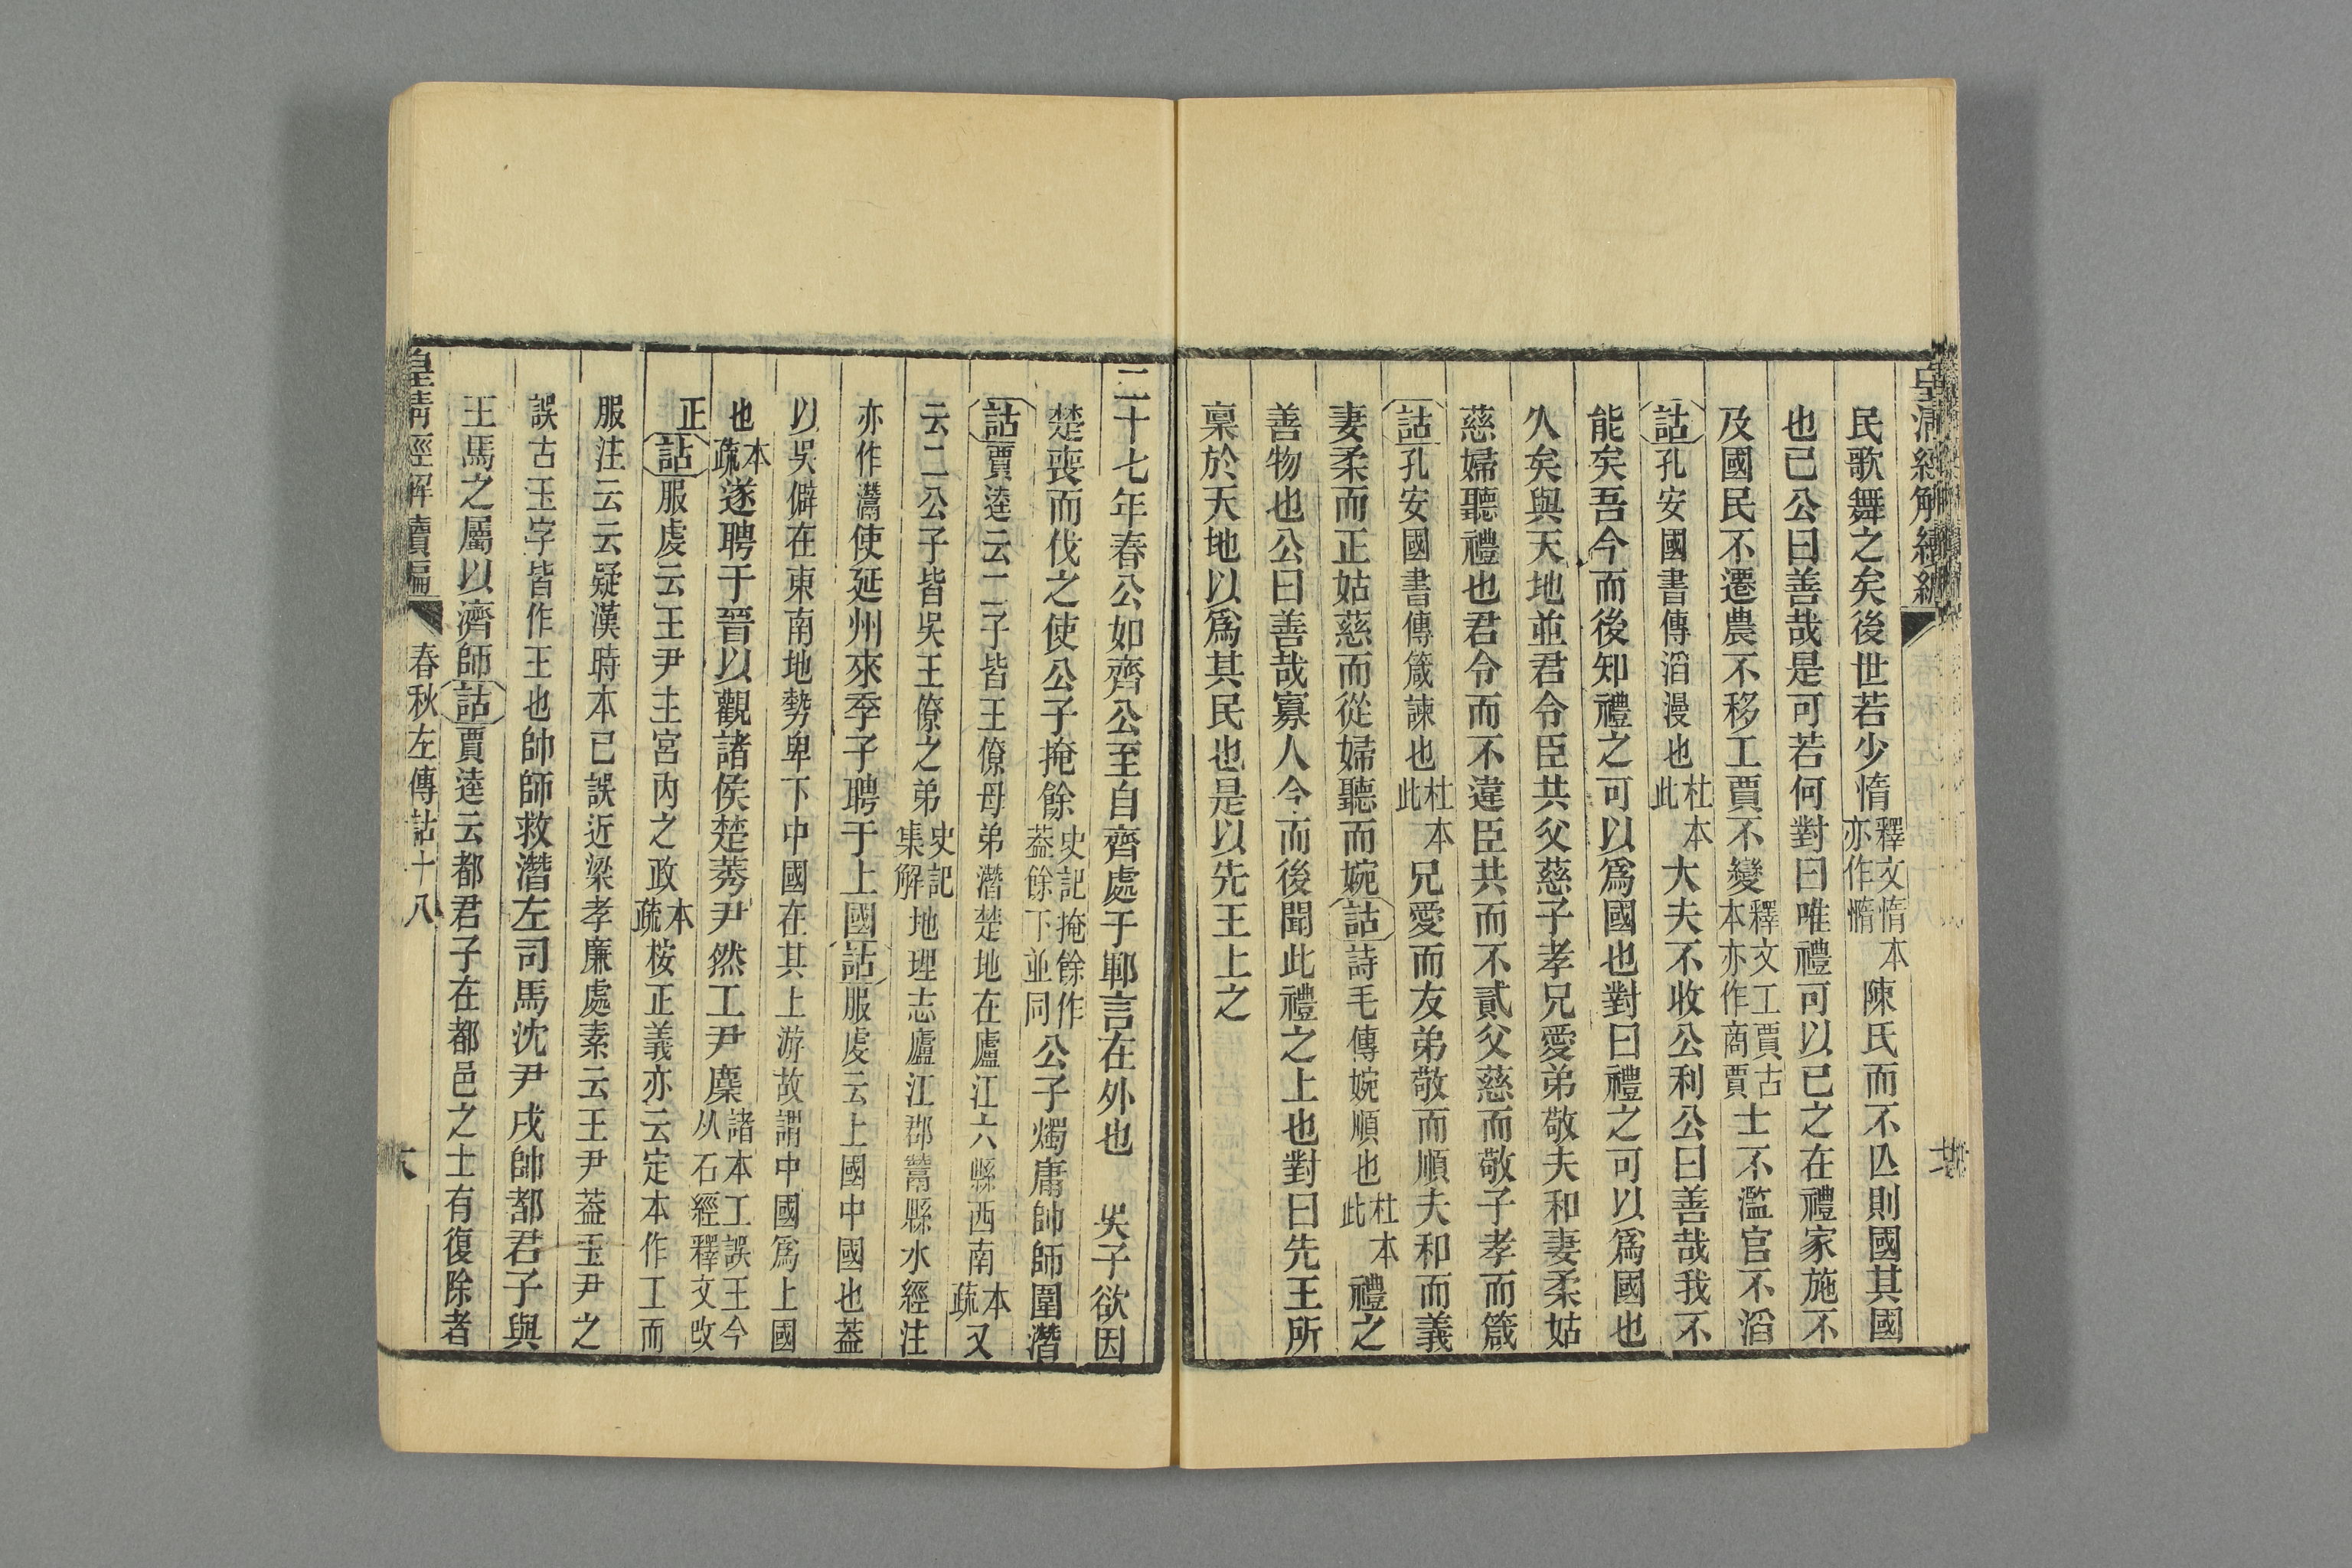 皇清經解續編
民歌舞之矣後世若少惰釋文惰本亦作憜陳氏而不亾則國其國
也已公曰善哉是可若何對曰唯禮可以已之在禮家施不
及國民不遷農不移工賈不變釋文工賈古本亦作商賈士不濫官不滔
詁孔安國書傳滔漫也杜本此大夫不收公利公曰善哉我不
能矣吾今而後知禮之可以爲國也對曰禮之可以爲國也
久矣與天地並君令臣共父慈子孝兄愛弟敬夫和妻柔姑
慈婦聽禮也君令而不違臣共而不貳父慈而敬子孝而箴
詁孔安國書傳箴諫也杜本此兄愛而友弟敬而順夫和而義
妻柔而正姑慈而從婦聽而婉詁詩毛傳婉順也杜本此禮之
善物也公曰善哉寡人今而後聞此禮之上也對曰先王所
稟於天地以爲其民也是以先王上之
二十七年春公如齊公至自齊處于鄆言在外也 吳子欲因
楚喪而伐之使公子掩餘史記掩餘作葢餘下並同公子燭庸帥師圍潛
詁賈逵云二子皆王僚母弟潛楚地在廬江六縣西南本疏又
云二公子皆吳王僚之弟史記集解地理志廬江郡灊縣水經注
亦作灊使延州來季子聘于上國詁服虔云上國中國也葢
以吳僻在東南地勢卑下中國在其上游故謂中國爲上國
也本疏遂聘于晉以觀諸侯楚莠尹然工尹麇諸本工誤王今从石經釋文改
正詁服虔云王尹主宮內之政本疏桉正義亦云定本作工而
服注云云疑漢時本已誤近梁孝廉處素云王尹葢玉尹之
誤古玉字皆作王也帥師救潛左司馬沈尹戌帥都君子與
王馬之屬以濟師詁賈逵云都君子在都邑之士有復除者
皇清經解續編 春秋左傳詁十八